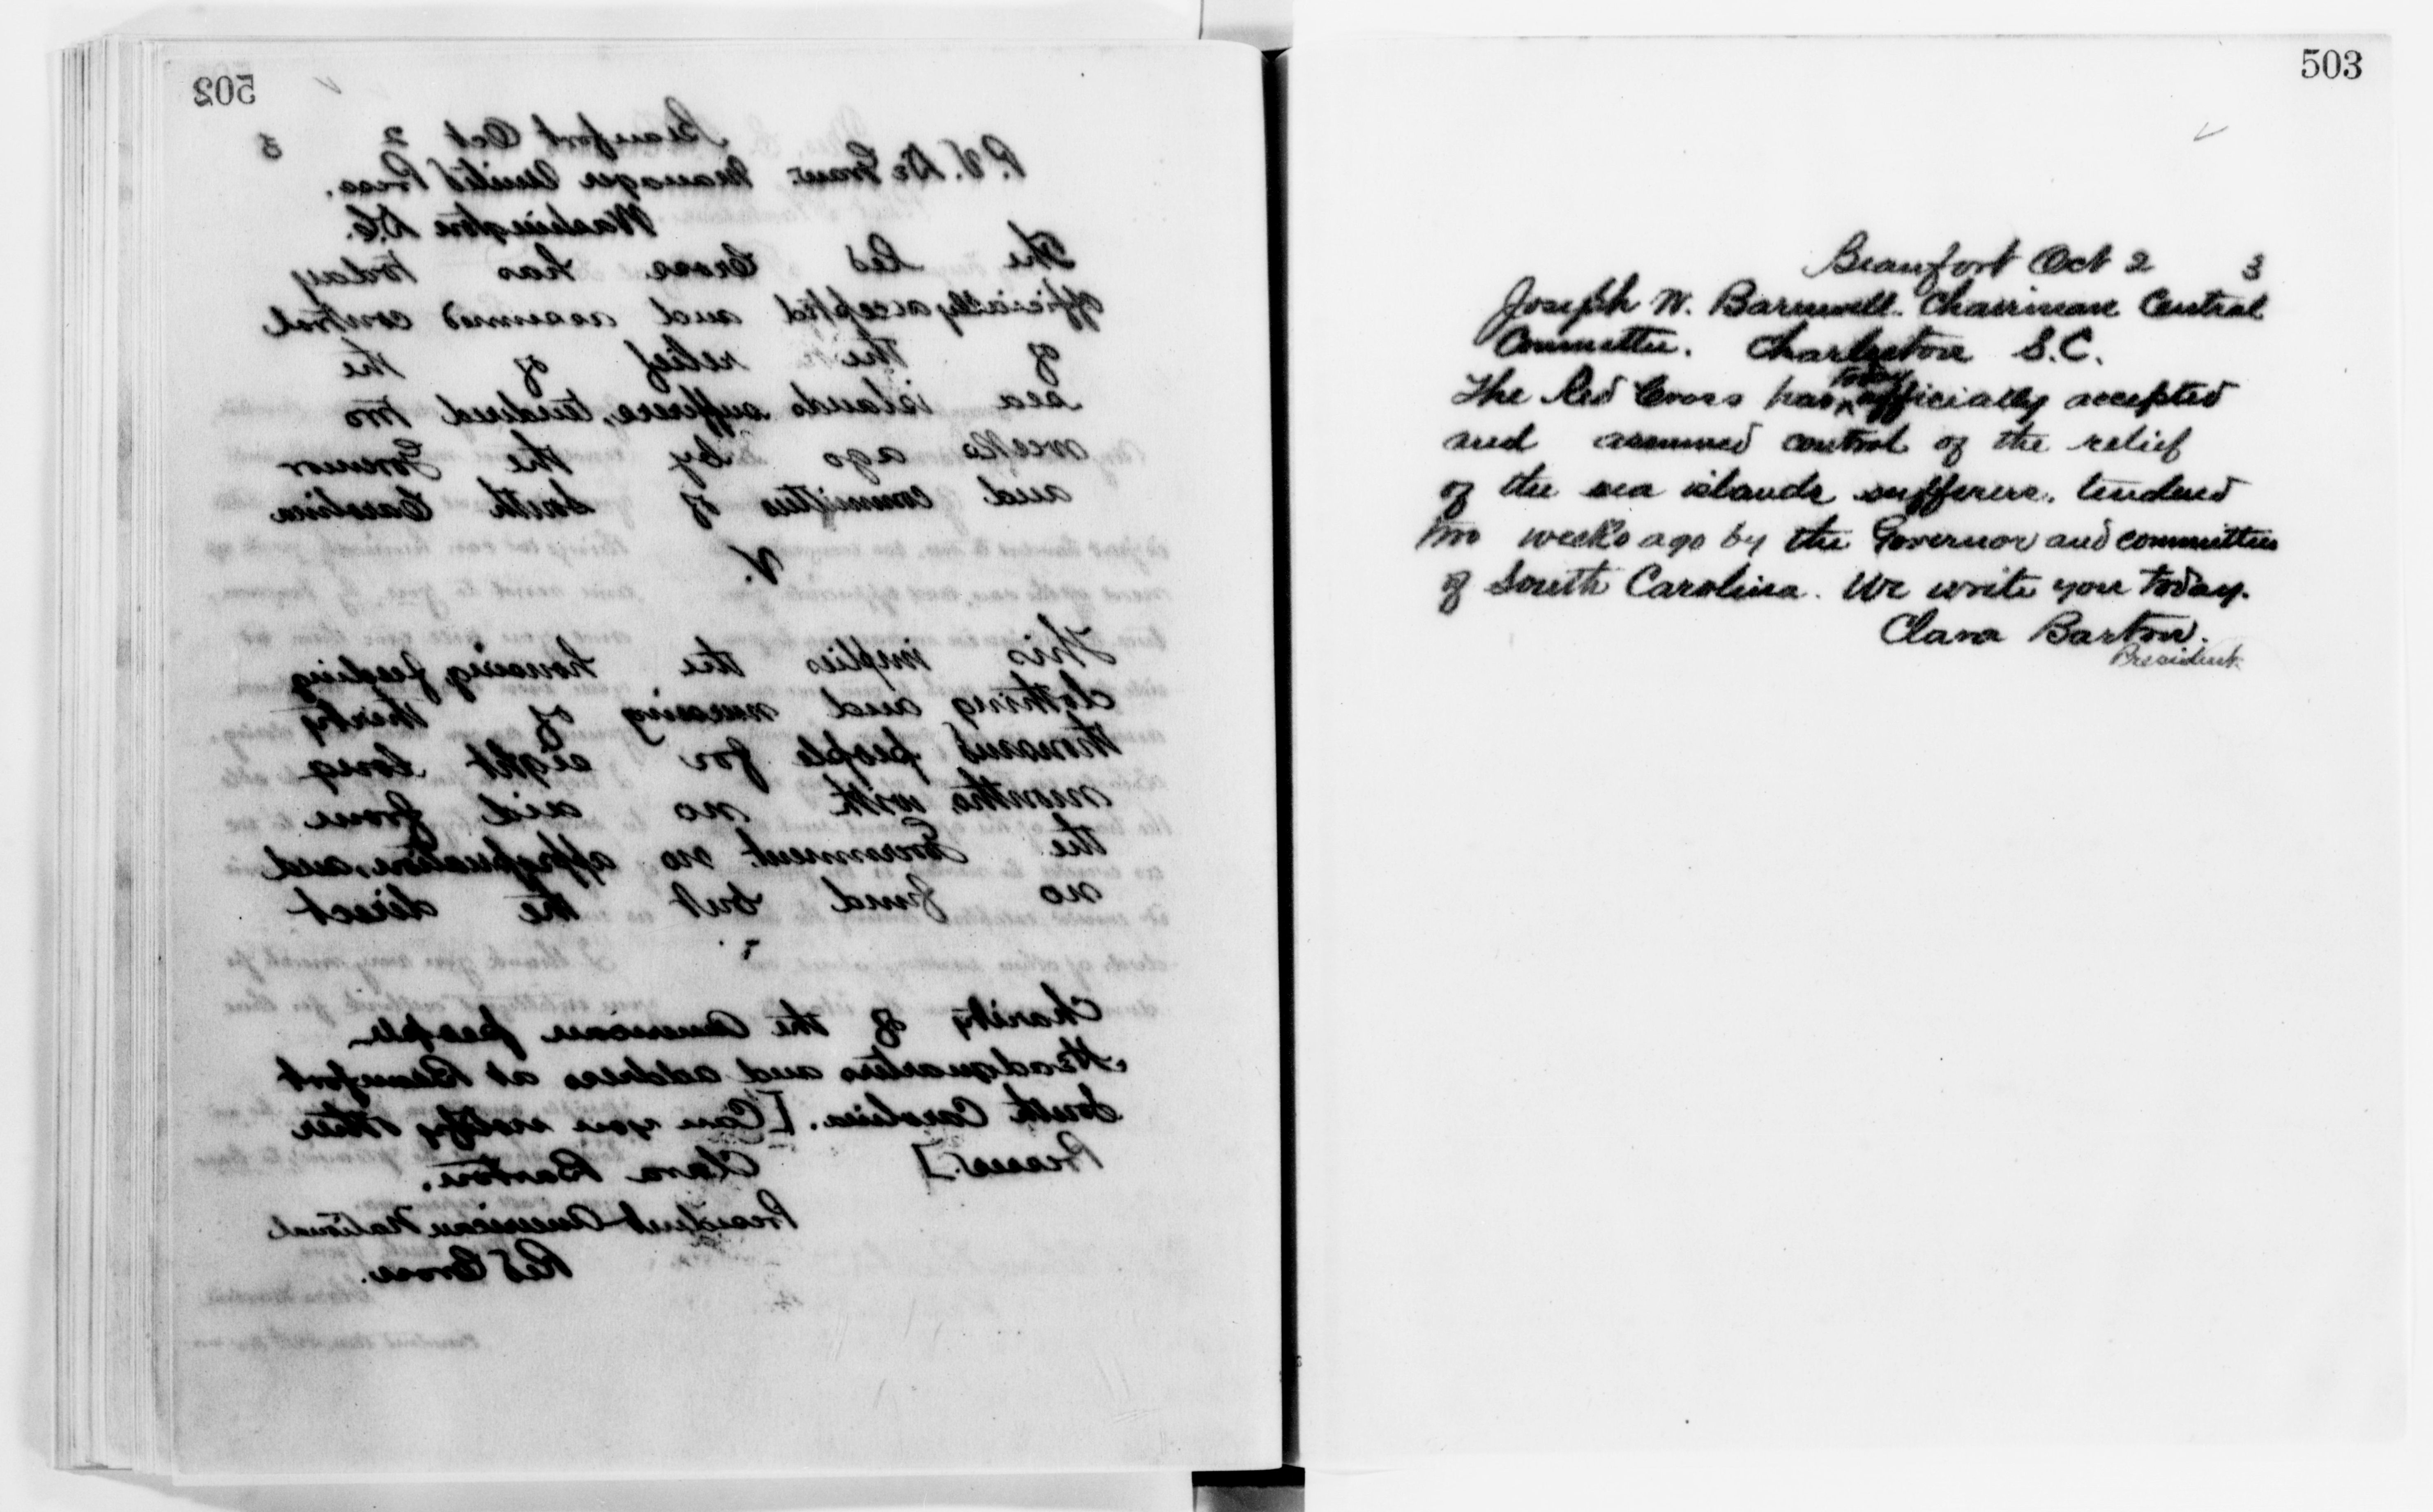 502
Beaufort Oct 2 3
P.V. De Graw. Manager United Press.
Washington D.C.
The Red Cross has today
officially accepted and assumed control
of the relief of the
sea islands sufferers, tendered two
weeks ago by the Governor
and committees of South Carolina
This implies the housing, feeding
clothing and nursing of thirty
thousand people for eight long
months, with no aid from
the Government. no appropriation, and
no fund but the direct
Charity of the American people
Headquarters and address at Beaufort
South Carolina. [Can you notify other
Presses.] Clara Barton.
President American National
Red Cross.
503
Beaufort Oct 2 3
Joseph W. Barnwell. Chairman Central
Committee. Charleston S.C.
The Red Cross has today officially accepted
and assumed control of the relief
of the sea islands sufferers. tendered
two weeks ago by the Governor and committees
of South Carolina. We write you today.
Clara Barton.
President